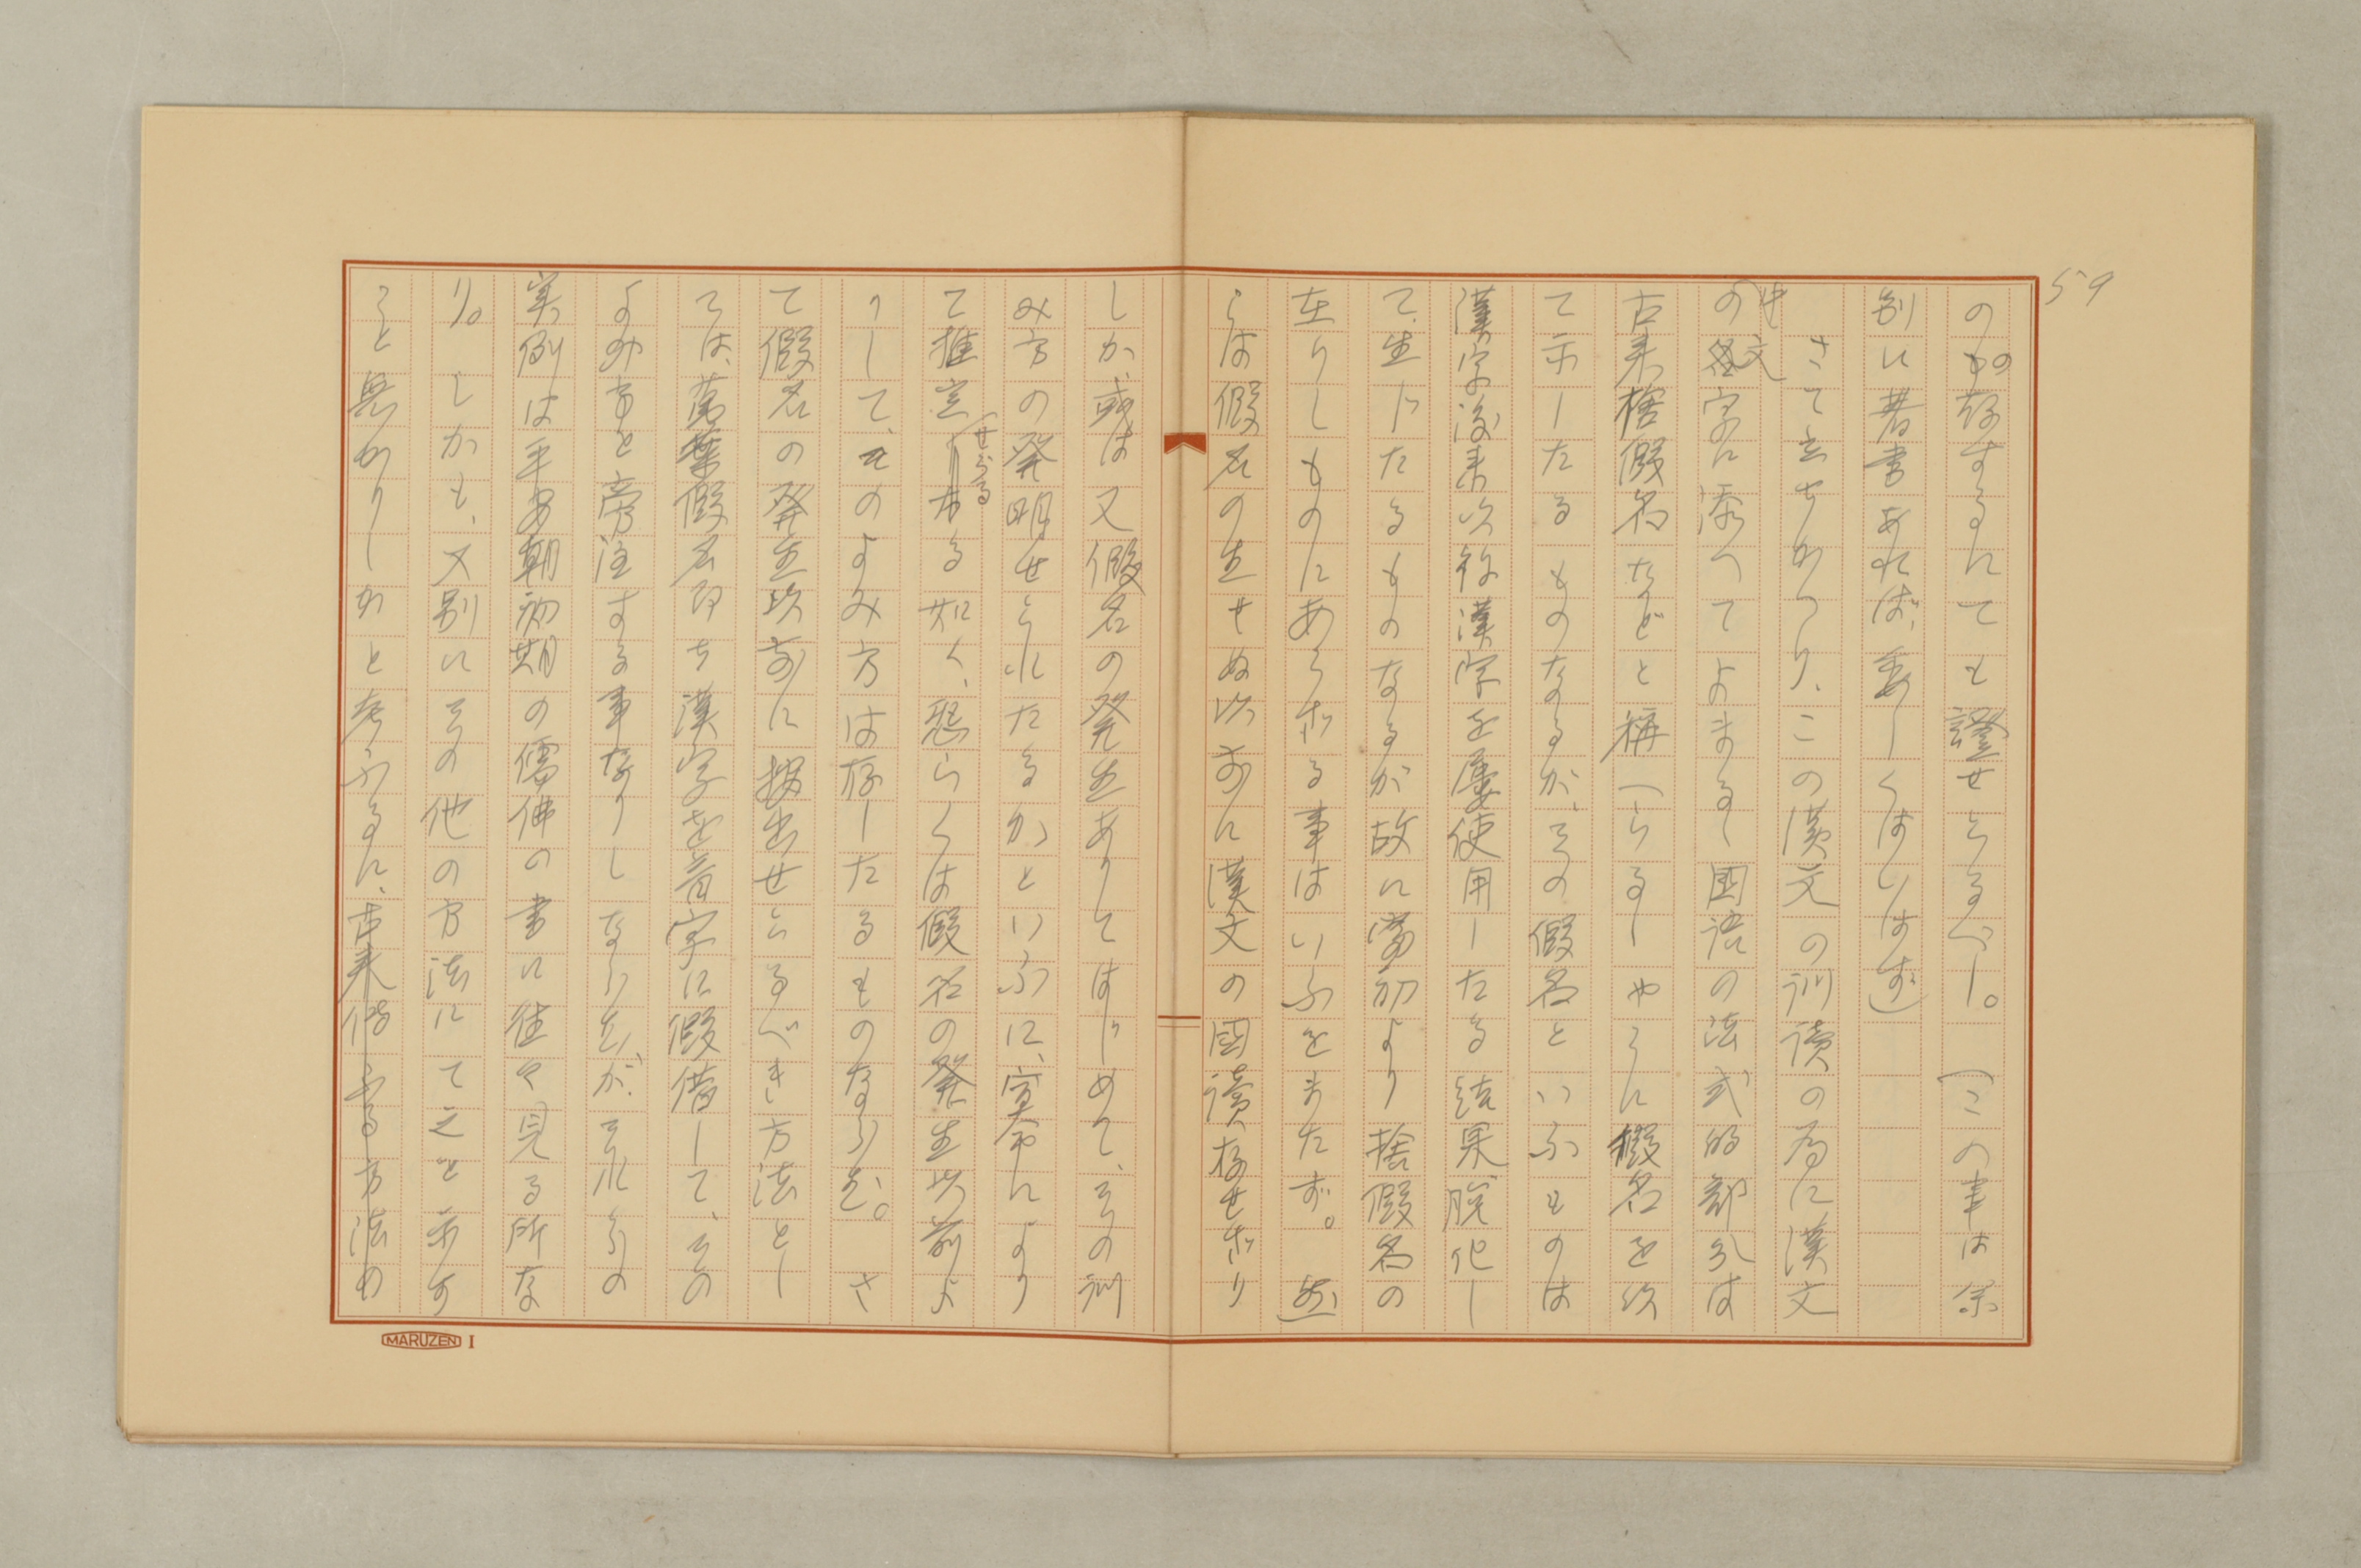 59
のもの存するにても證せらるべし。(この事は余
別に著書あれば、委しくはいはず)
さて立ちかへり、この漢文の訓讀の為に漢文
の中文字に添へてよまるゝ國語の法式的部分は
古来捨假名などと稱へらるゝやうに假名を以
て示したるものなるが、その假名といふものは
漢字渡来以後漢字を屡使用したる結果脱化し
て生じたるものなるが故に當初より捨假名の
在りしものにあらざる事はいふをまたず。然
らは假名の生せぬ以前に漢文の國讀存せざり
しか、或は又假名の発生ありてはじめて、その訓
み方の発明せられたるかといふに、実第により
て推定せらるる如く、恐らくは假名の発生以前よ
りして、そのよみ方は存したるものならむ。さ
て假名の発生以前に按出せらるべき方法とし
ては、萬葉假名即ち漢字を音字に假借して、その
よみ方を旁注する事なりしならむが、それらの
実例は平安朝初期の儒佛の書に往々見る所な
り。しかも、又別にその他の方法にて之を示す
こと無かりしかと考ふるに、
MARUZEN I